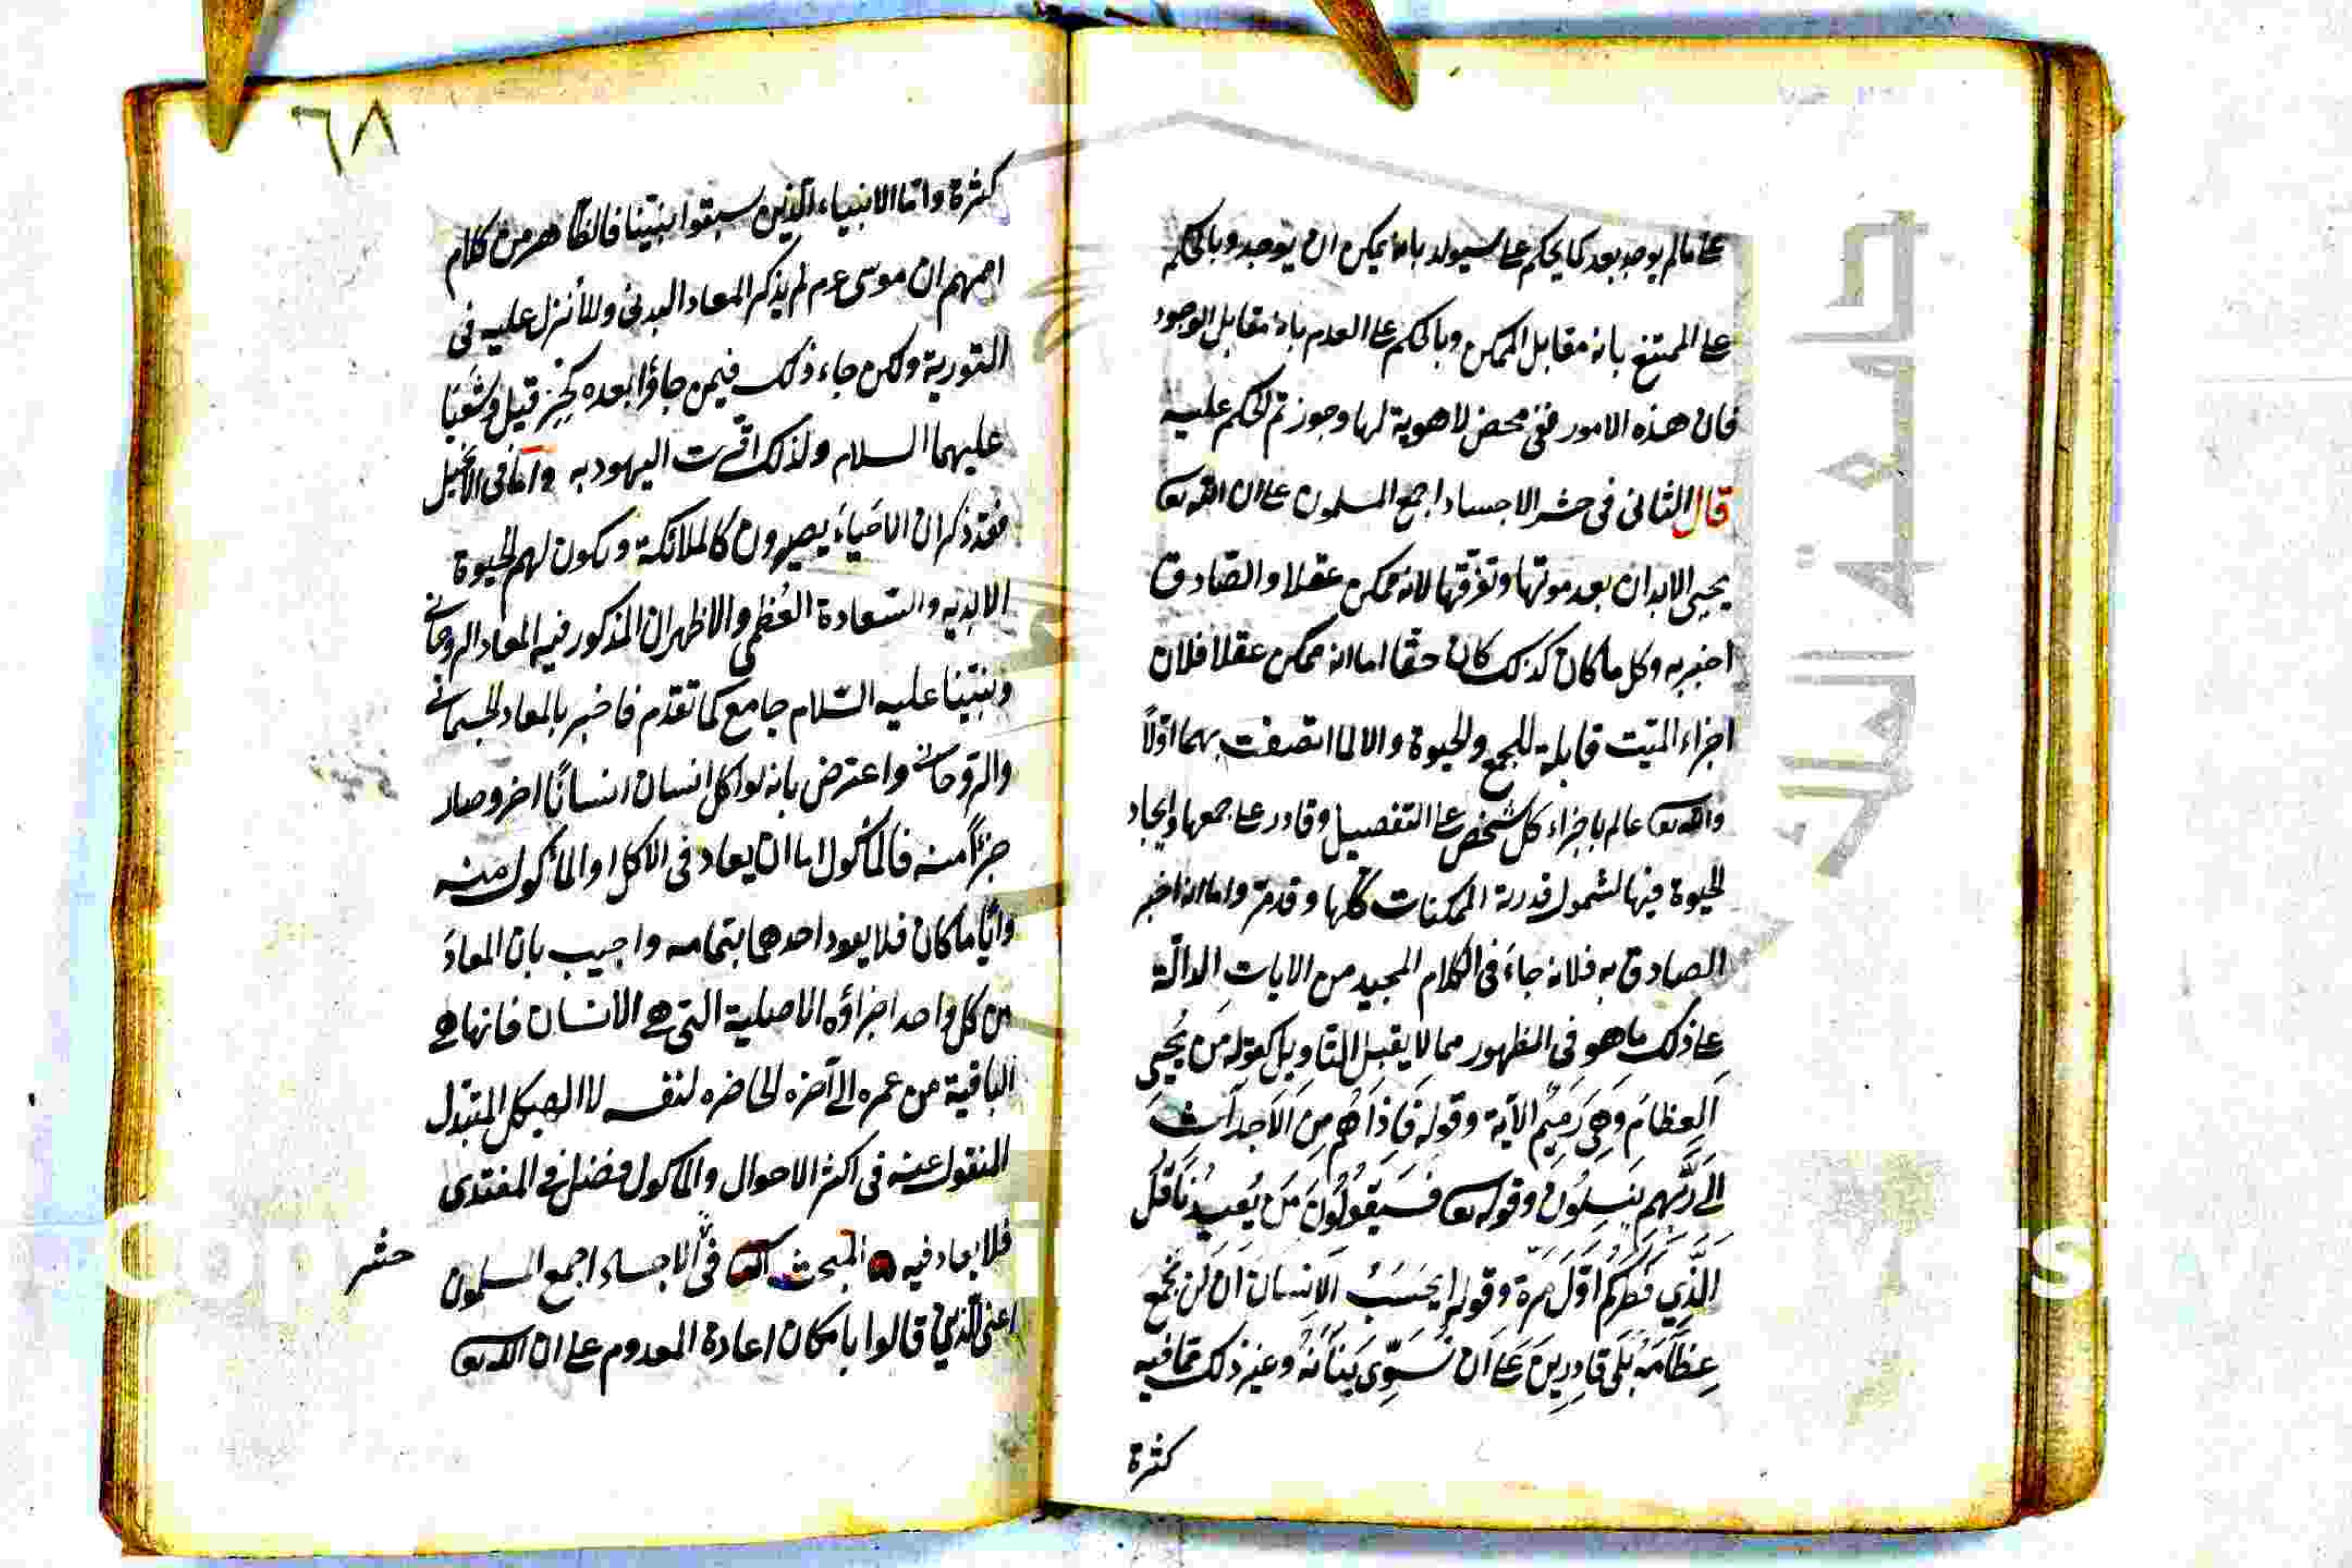 على ما لم يوجد بعد كما يحكم على سيولد بانه يمكن ان يوجد وبالحكم
على الممتنع بانه مقابل الممكن وبالحكم على العدم بانه مقابل الوجود
فان هذه الامور نفى محض لا هوية لها وجوزتم الحكم عليه
قال الثانى فى حشر الاجساد اجمع المسلمون على ان الله تعا
يحيى الابدان بعد موتها وتفرقها لانه ممكن عقلا والصادق
اخبر به وكل ما كان كذلك كان حقا اما انه ممكن عقلا فلان
اجزاء الميّت قابلة للجمع والحيوة والا لما اتصفت بهما اولاً
والله تعا عالم باجزاء كل شخص على التفصيل وقادر على جمعها وايجاد
الحيوة فيها لشمول قدرته الممكنات كلّها وقد مرّ واما انه اخبر
الصادق به فلانه جاءَ فى الكلام المجيد من الايات الدالّة
على ذلك ما هو فى الظهور مما لا يقبل التاويل كقوله مَن يُحيِى
العِظامَ وَهِىَ رَمِيمٌ الآية وقوله فَاِذَا هُم مِنَ الاَجدَاثِ
الى رَبِّهِم يَنسِلُونَ وقوله تعا فَسَيَقُولُونَ مَن يُعِيدُنَا قُلِ
الَّذِي فَطَرَكُم اَوَّلَ مَرّة وقوله ايَحسَبُ الاِنسَانُ اَن لَن نَجمَعَ
عِظَامَهُ بَلَى قَادِرِينَ عَلى اَن نُسَوِّىَ بَنَانَهُ وغير ذلك مما فيه
كثرة
٦٨
كثرة واما الانبياء الّذين سبقوا نبيّنا فالظاهر من كلام
اممهم ان موسى عم لم يذكر المعاد البدنى ولا أنزل عليه فى
التورية ولكن جاء ذلك فيمن جاؤا بعده كحِزقيل وشَعيَا
عليهما السلام ولذلك اقرّت اليهود به وامّا فى الانجيل
فقد ذكر ان الاخيارَ يصيرون كالملائكة وتكون لهم الحيوة
الابديه والسّعادة العُظمى والاظهر ان المذكور فيه المعاد الروحانى
ونبيّنا عليه السّلام جامع كما تقدّم فاخبر بالمعاد الجسمانى
والروحانى واعترض بانه لو اكل انسان انسانًا اخر وصار
جزءًا منه فالمأكول اما ان يعاد فى الاكل او المأكول منه
وايّا ما كان فلا يعود احدهما بتمامه واجيب بان المعادَ
من كل واحد اجزاؤه الاصلية التى هى الانسان فانها هى
الباقية من عمره الى آخره الحاضره لنفسه لا الهيكل المتبدل
المنقول عنه فى اكثر الاحوال والماكول فضل فى المغتذى
فلا يعاد فيه المبحث الثانى فى الاجساد اجمع المسلمون
حشر
اعنى الّذين قالوا بامكان اعادة المعدوم على ان الله تعا